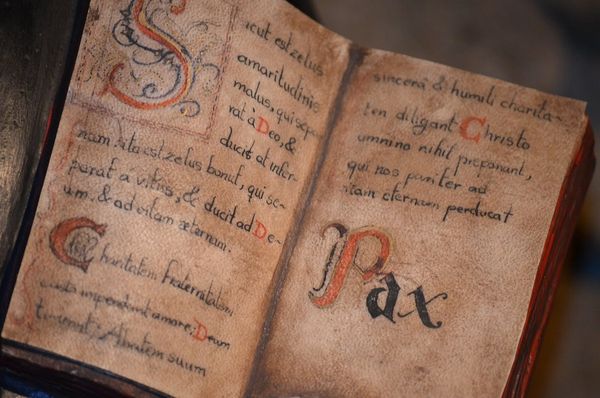 Sicut est zelus
amaritudinis
malus, qui sepa
rat a Deo, &
ducit at infer
nam ita est zelus bonut, qui se-
parat a vitiis, & ducit ad De-
um, & ad vitam æternam.
Charitatem fraternitatem
impendant amore; Deum
timeant; Abatem suum
sincera & humili charita-
ten diligant Christo
omnino nihil preponant,
qui nos pariter ad
vitam eternam perducat
Pax